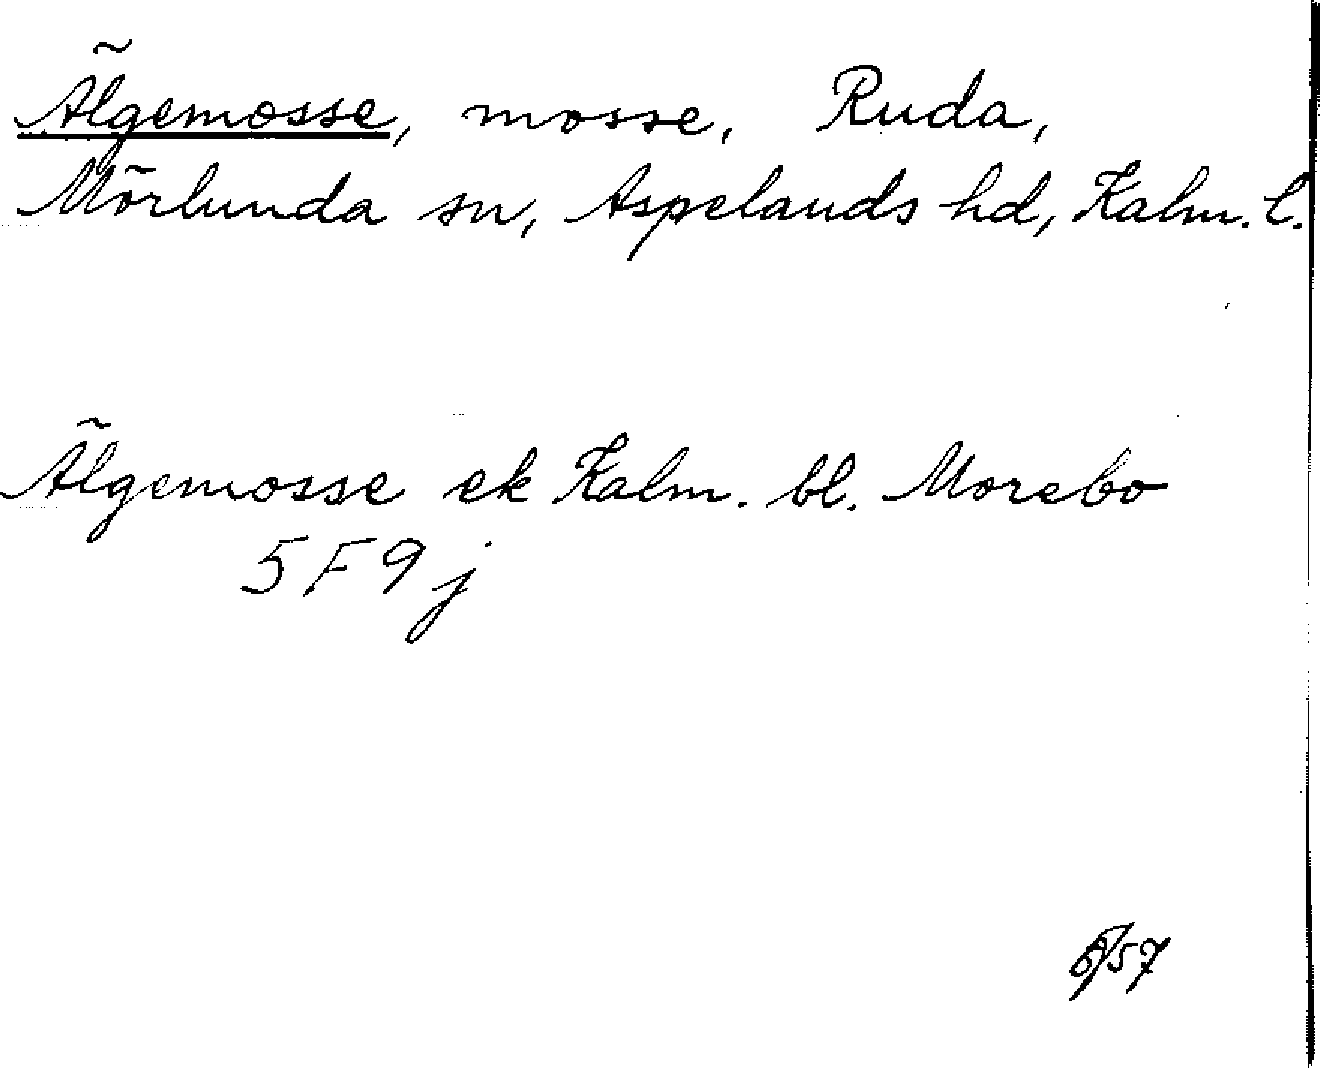 Älgemosse, mosse, Ruda,
Mörlunda sn, Aspelands hd, Kalm. l.
Älgemosse ek Kalm. bl. Morebo
5F9j